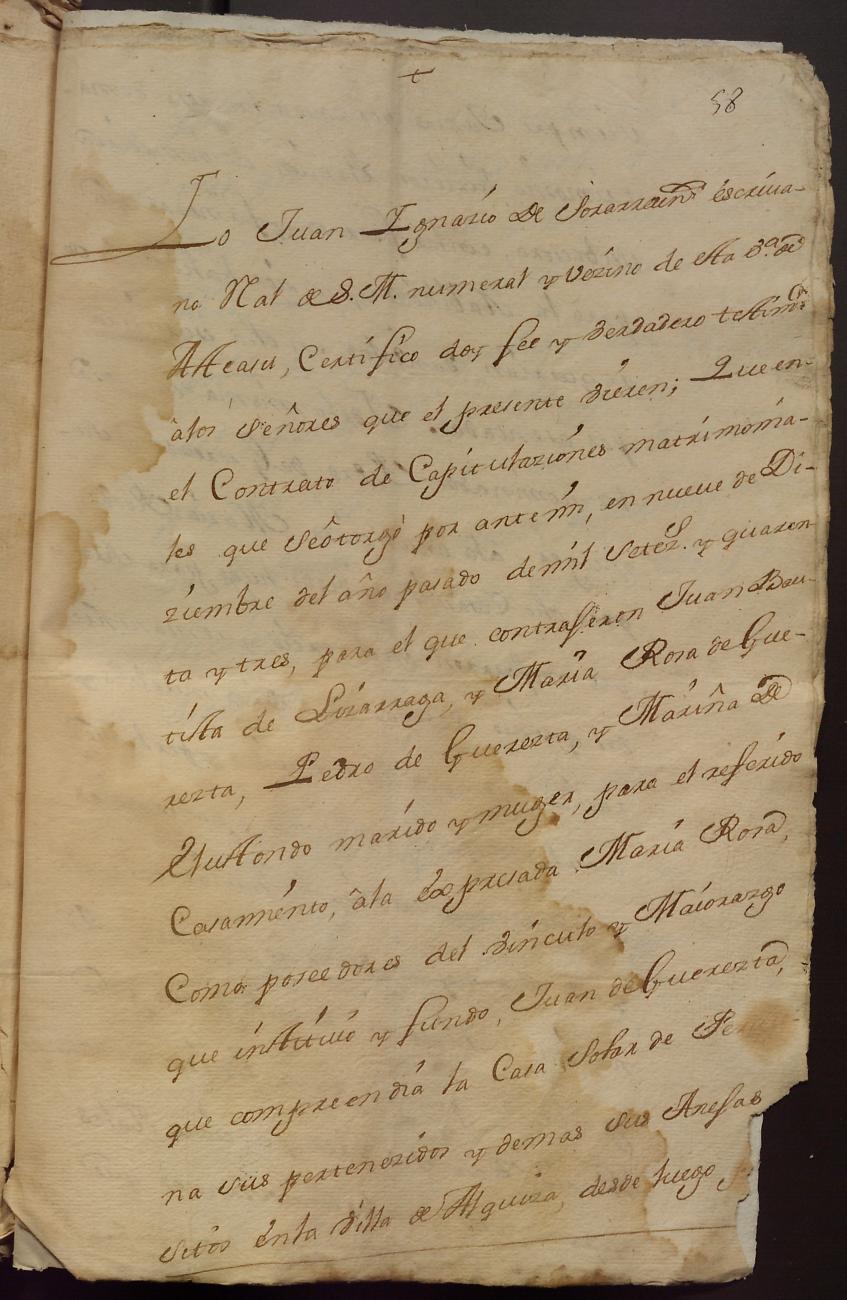 +
58
Yo Juan Ignazio de Sorarrain escriva-
no Rl. de S. M. numeral y Vezino de sta Va. de
Atteasu, Certifico doy fee y verdadero testimo
âlos señores que el presente vieren; Que en
el Contrato de Capitulaziones matrimonia-
les que seôtorgò por antemi, en nueve de Di-
ziembre del año pasado demil Setezs. y quaren
ta y tres, para el que contrageron Juan Bau-
tista de Lizarraga, y Maria Rosa de Gue-
rezta, Pedro de Guerezta, y Mariña De
Elustondo marido y muger, para el referido
Casamiento, âla êxpresada Maria Rosa,
Como poseedores del vinculo y Maiorazgo
que instituiò y fundo, Juan de Guerezta,
que comprendia la Casa Solar de
na sus pertenezidos y demas sus Anefas
sitos ênla villa de Alquiza, desde luego